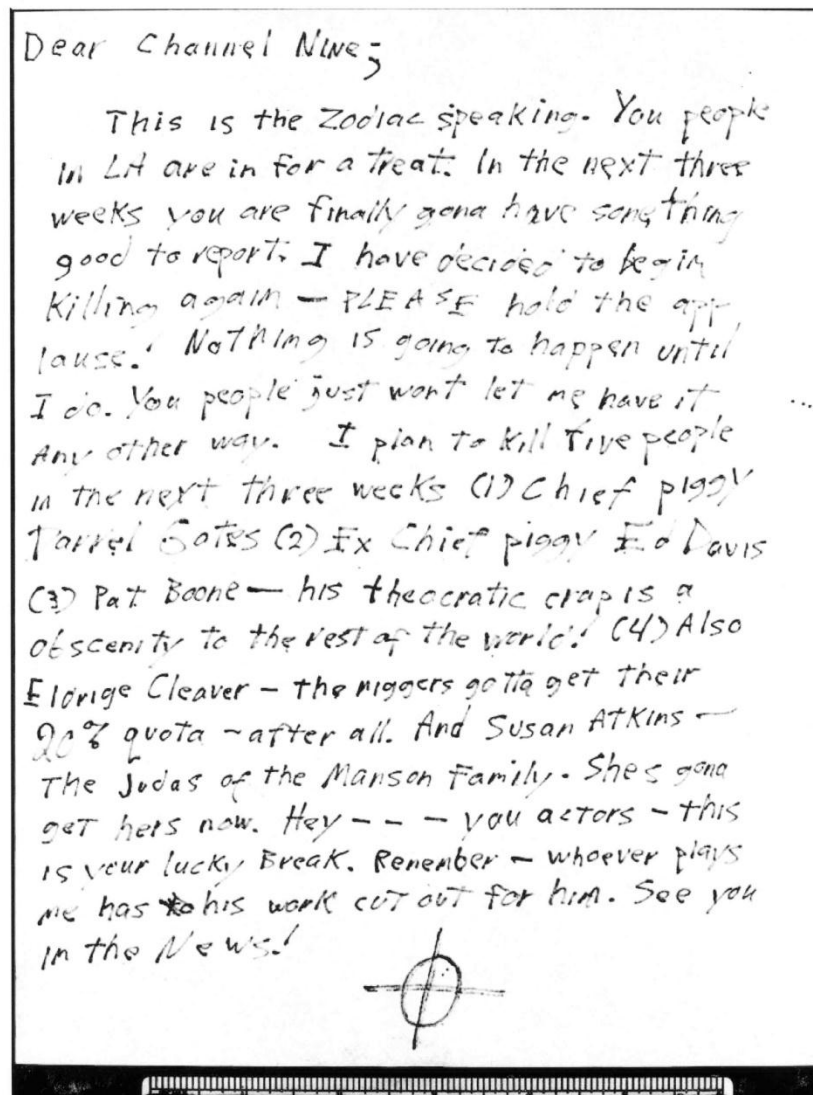 Dear Channel Nine;
This is the Zodiac speaking. You people
in LA are in for a treat. In the next three
weeks you are finally gona have something
good to report. I have decided to begin
killing again — PLEASE hold the app
lause! Nothing is going to happen until
I do. You people just wont let me have it
any other way. I plan to kill five people
in the next three weeks (1) Chief piggy
Darrel Gates (2) Ex Chief piggy Ed Davis
(3) Pat Boone — his theocratic crap is a
obscenity to the rest of the world! (4) Also
Eldrige Cleaver — the niggers gotta get their
20% quota — after all. And Susan Atkins —
The Judas of the Manson Family. Shes gona
get hers now. Hey - - - you actors — this
is your lucky Break. Remember — whoever plays
me has his work cut out for him. See you
in the News!